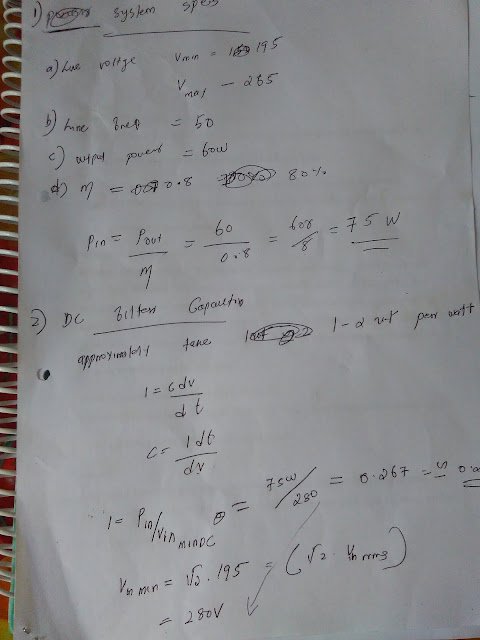 1) system specs
a) Line voltge Vmin = 195
Vmax - 265
b) Line freq = 50
c) output power = 60W
d) η = 0.8 80%
Pin = Pout/η = 60/0.8 = 600/8 = 75 W
2) DC filter Capacitor
approximately take 1-2 uf per watt
I = C dv/dt
C = I dt/dv
I = Pin/Vin min DC = 75W/280 = 0.267 = ≈
Vin min = √2 . 195 = (√2 . Vn rms)
= 280V